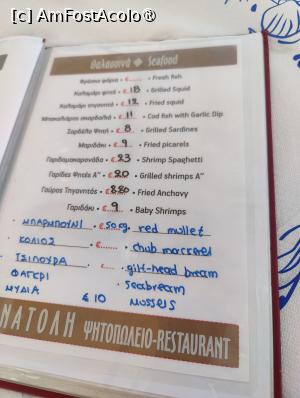 [c] AmFostAcolo®
Θαλασσινά ◆ Seafood
Φρέσκα ψάρια • €...... • Fresh fish
Καλαμάρι ψητό • € 18 • Grilled Squid
Καλαμάρι τηγανητό • € 12 • Fried squid
Μπακαλιάρος σκορδαλιά • € 11 • Cod fish with Garlic Dip
Σαρδέλα Ψητή • € 8 • Grilled Sardines
Μαριδάκι • € 9 • Fried picarels
Γαριδομακαρονάδα • € 23 • Shrimp Spaghetti
Γαρίδες Ψητές Α" • € 20 • Grilled shrimps A"
Γαύρος Τηγανητός • 8.80 • Fried Anchovy
Γαριδάκι • € 9 • Baby Shrimps
• ΜΠΑΡΜΠΟΥΝΙ • € red mullet
• ΚΟΛΙΟΣ • €...... • chub mackerel
• ΤΣΙΠΟΥΡΑ • €.... • gilt-head bream
ΦΑΓΚΡΙ • Seabream
ΜΥΔΙΑ € 10 Mussels
ΝΑΤΟΛΗ ΨΗΤΟΠΩΛΕΙΟ-RESTAURANT